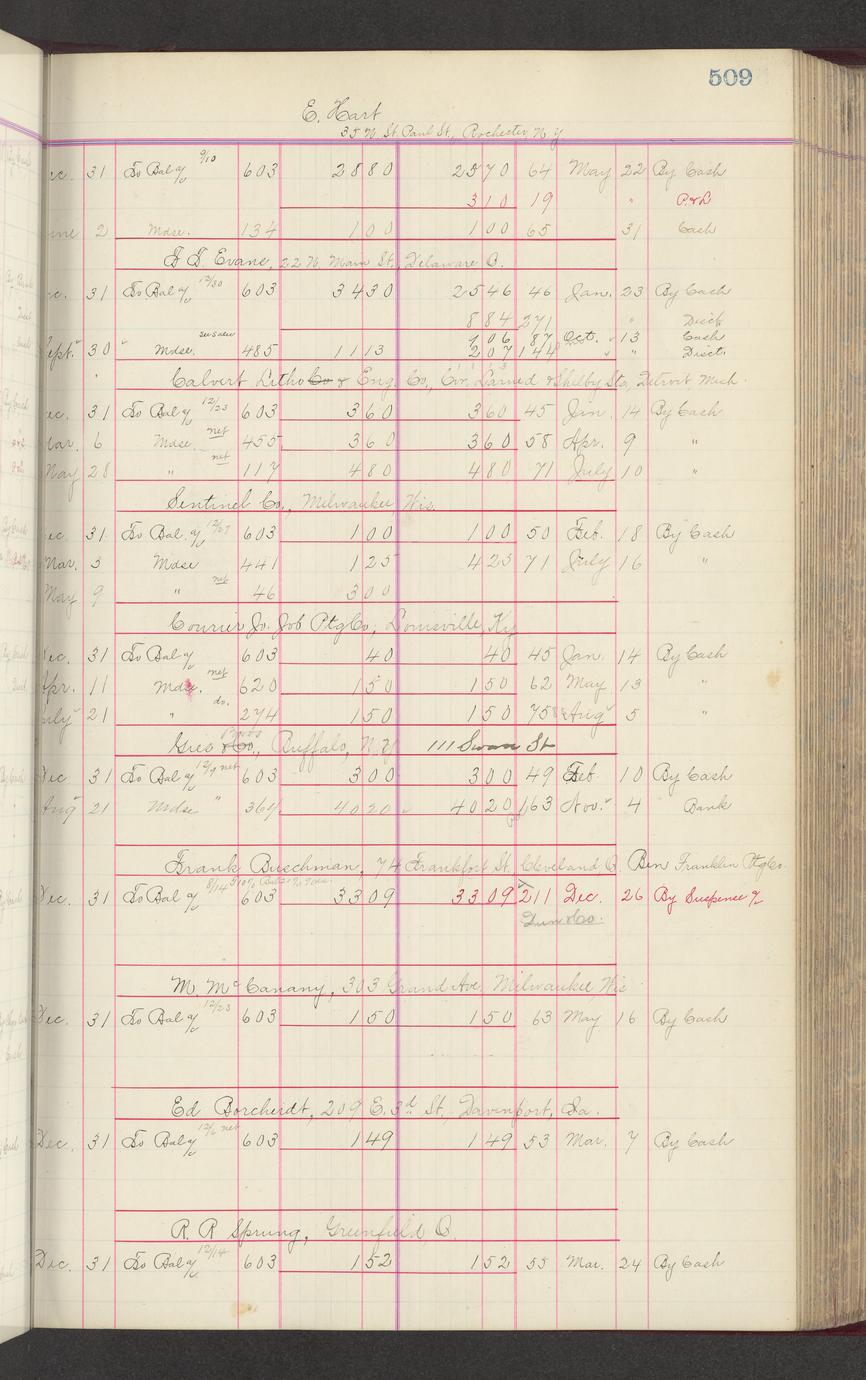 509
E. Hart
35 N. St. Paul St., Rochester, N.Y.
ec. 31 To Bal a/c 9/10 603 2880 2570 64 May 22 By Cash
310 19 " P. & L.
une 2 Mdse. 134 100 100 65 31 Cash
Evans, 22 N. Main St., Delaware O.
c. 31 To Bal a/c 12/30 603 3430 2546 46 Jan. 23 By Cash
884 271 " Disct
906 87 Oct. " 13 Cash
ept. 30 " Mdse. 485 1113 207 144 " " Disct.
Calvert Litho Co & Eng. Co., Cor. Larned & Shelby Sts, Detroit Mich.
ec. 31 To Bal a/c 12/23 603 360 360 45 Jan. 14 By Cash
ar. 6 Mdse net 455 360 360 58 Apr. 9 "
May 28 " net 117 480 480 71 July 10 "
Sentinel Co., Milwaukee, Wis.
ec. 31 To Bal. a/c 12/27 603 100 100 50 Feb. 18 By Cash
Mar. 3 Mdse 441 125 425 71 July 16 "
May 9 " net 46 300
Courier Jo. Job Ptg Co., Louisville, Ky
Dec. 31 To Bal a/c 603 40 40 45 Jan. 14 By Cash
Apr. 11 Mdse. net 620 150 150 62 May 13 "
uly 21 " do. 274 150 150 75 Aug 5 "
Gies & Co., Bros Buffalo, N.Y. 111 Swan St
Dec 31 To Bal a/c 12/9 net 603 300 300 49 Feb. 10 By Cash
Aug 21 Mdse " 364 4020 4020 163 Nov. 4 Bank
Frank Buschman, 74 Frankfort St. Cleveland O. Ben Franklin Ptg Co.
Dec. 31 To Bal a/c 8/14 603 3309 3309 211 Dec. 26 By Suspense a/c
Dun & Co.
M. McCanany, 303 Grand Ave. Milwaukee, Wis
Dec. 31 To Bal a/c 12/23 603 150 150 63 May 16 By Cash
Ed Borcheidt, 209 E. 3d St., Davenport, Ia.
Dec. 31 To Bal a/c 12/6 net 603 149 149 53 Mar. 7 By Cash
R. R Sprung, Greenfield, O.
Dec. 31 To Bal a/c 12/14 603 152 152 55 Mar. 24 By Cash